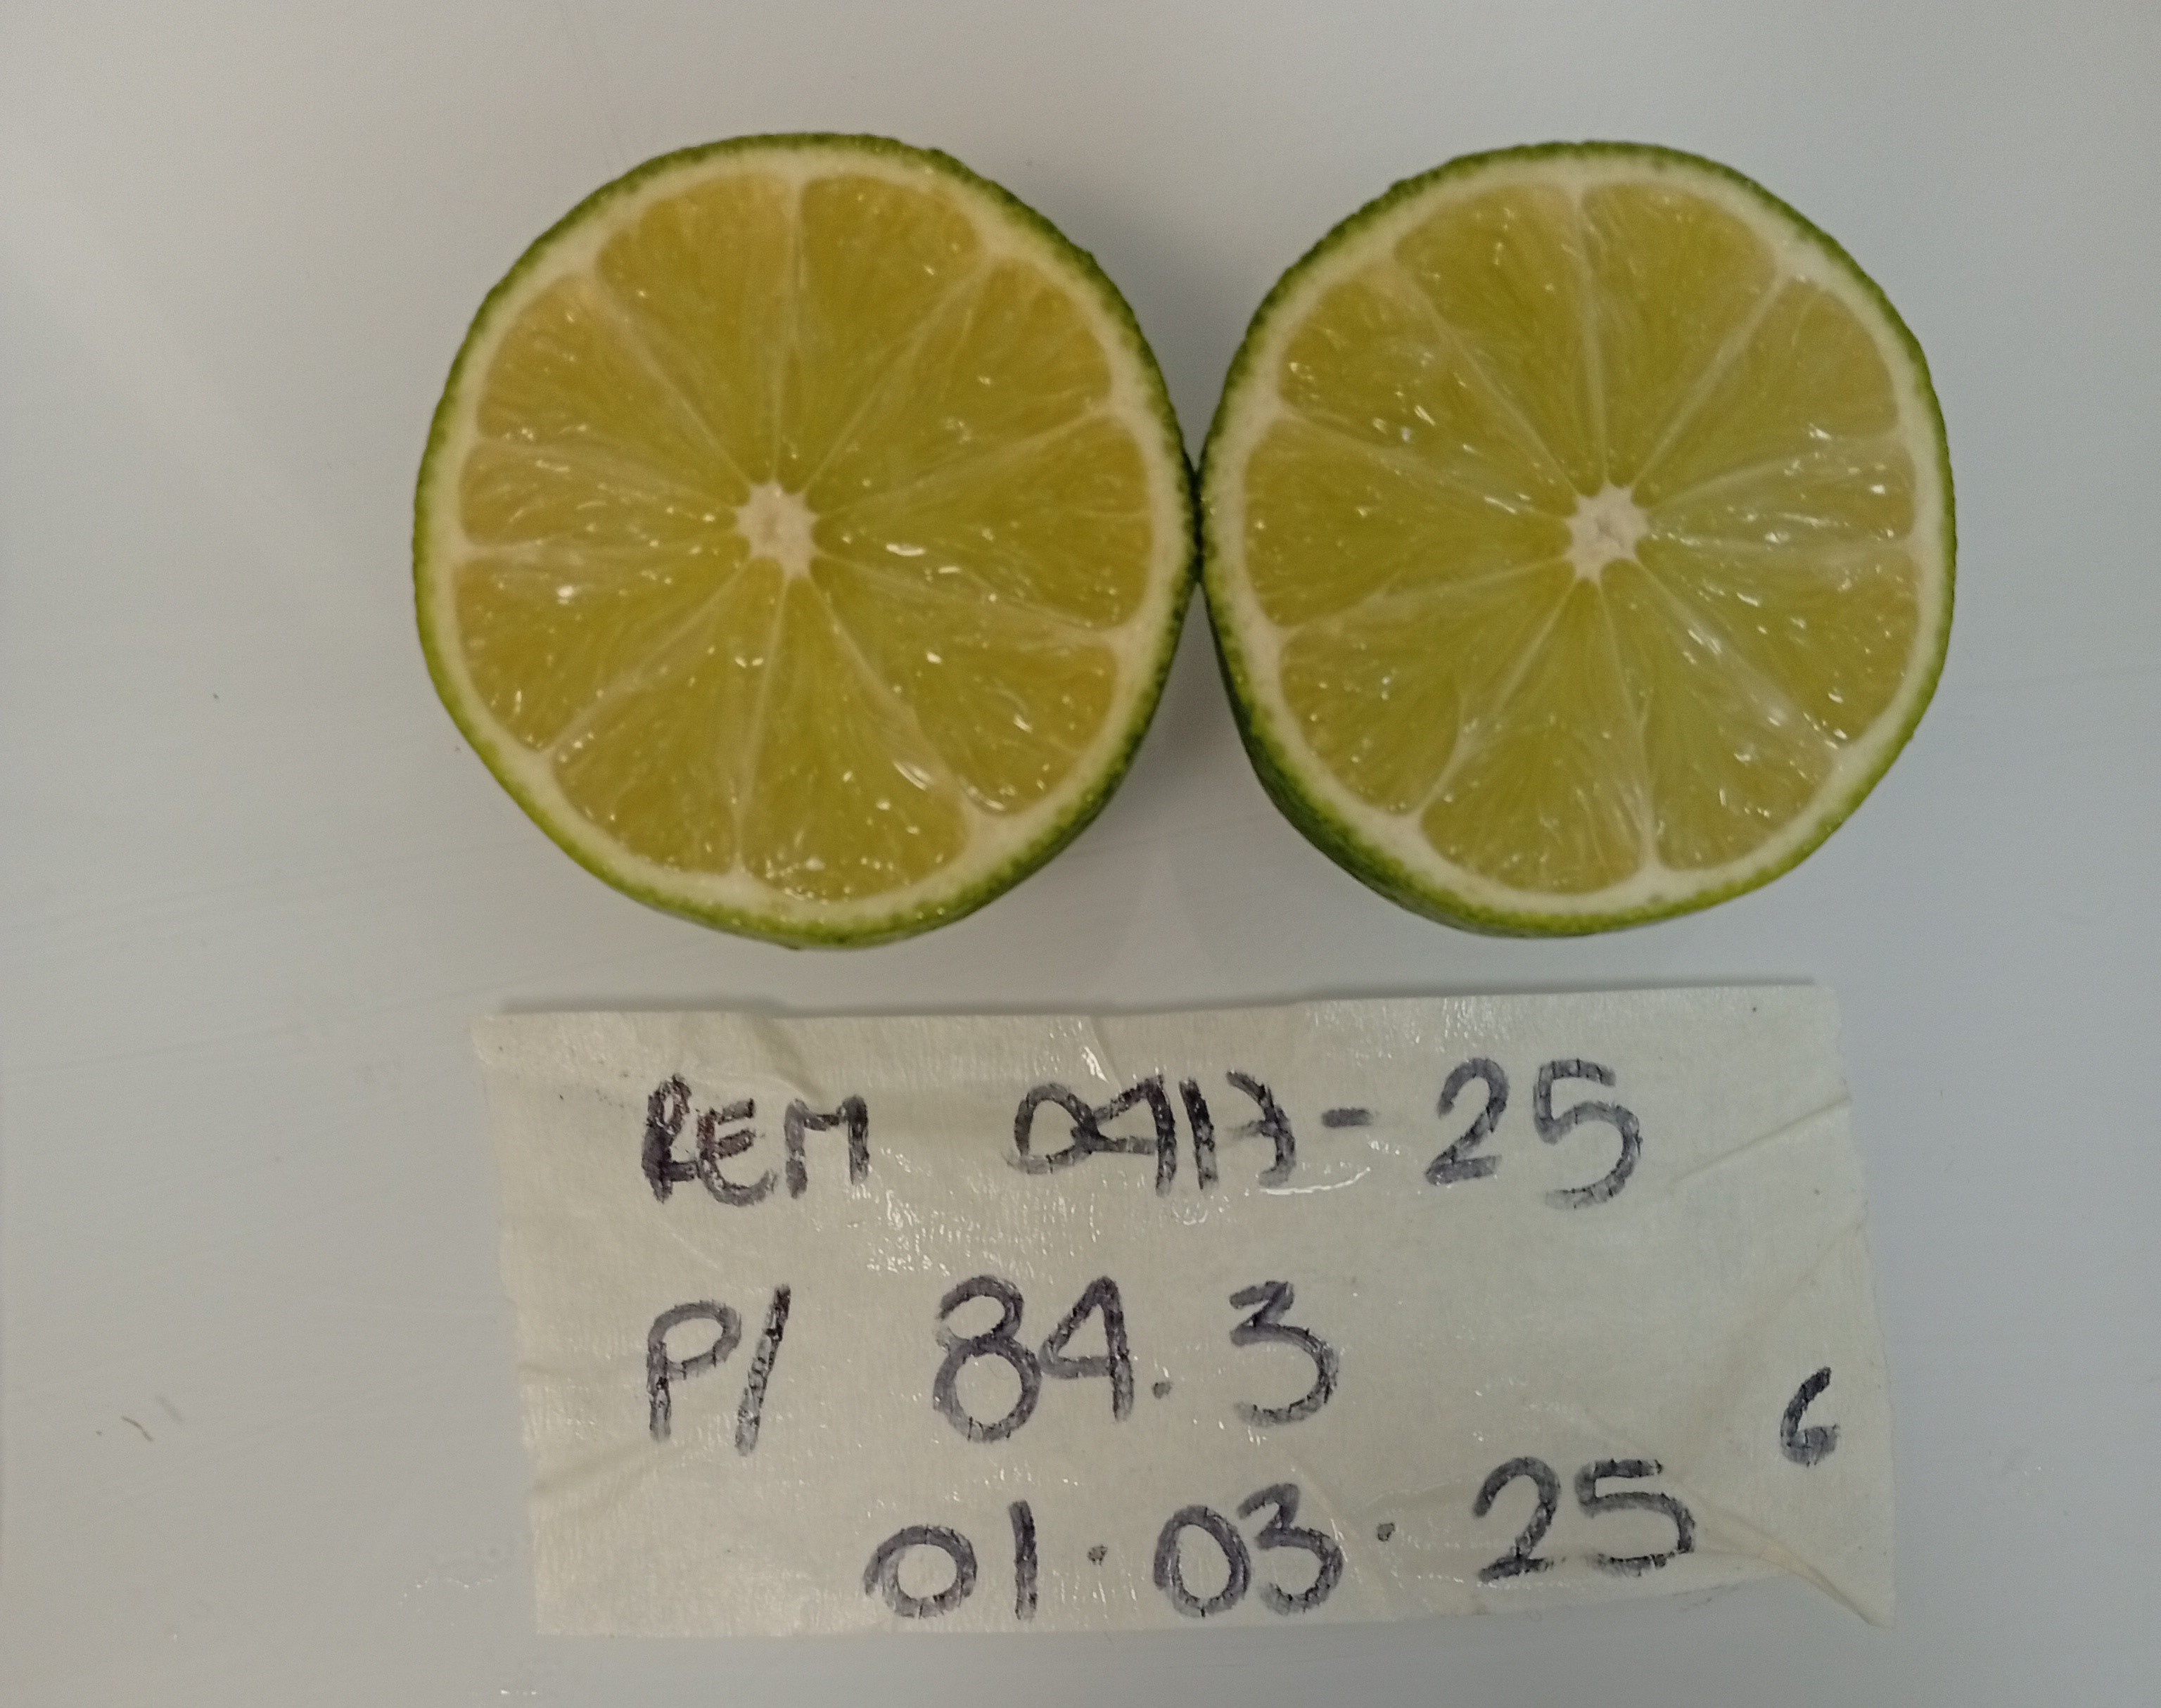 REM 0417-25
P/ 84.3
6
01.03.25